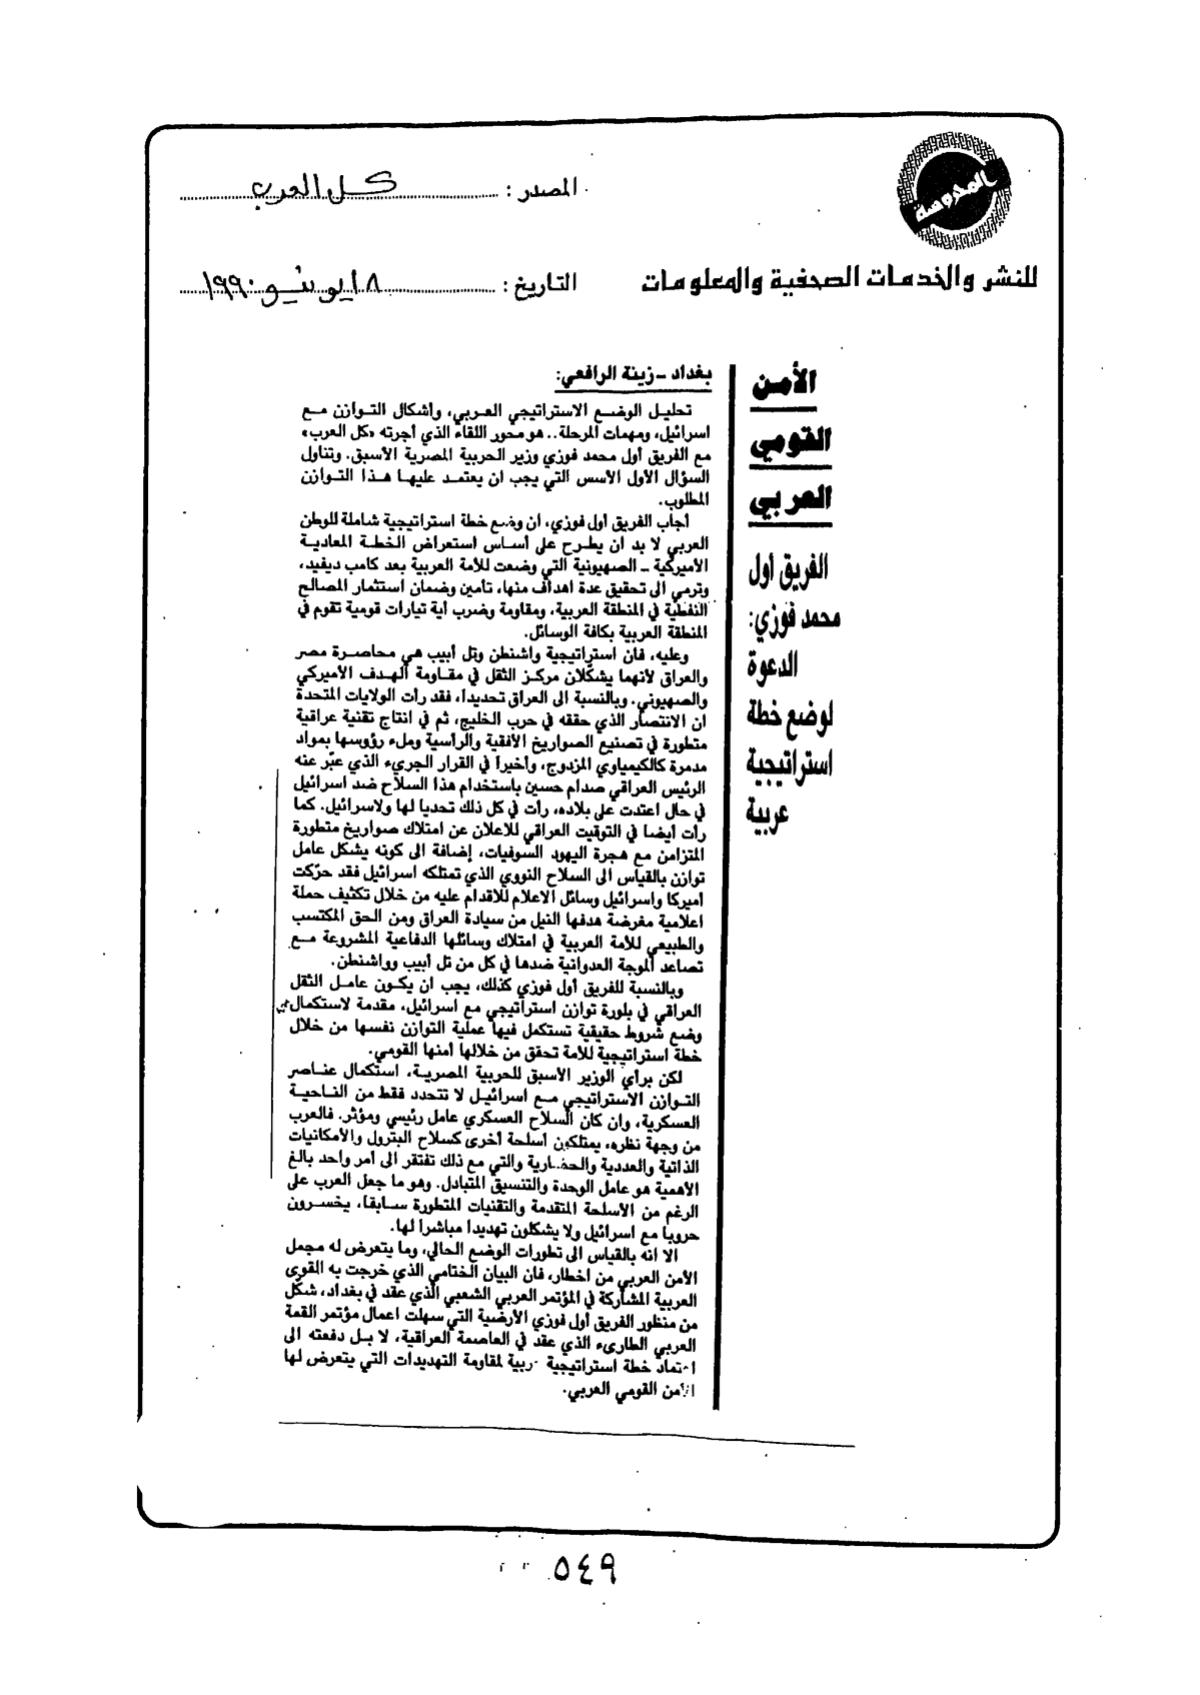 المحروسة
المصدر : كل العرب
للنشر والخدمات الصحفية والمعلومات
التاريخ : ١٨ يونيو ١٩٩٠
الأمن
القومي
العربي
الفريق اول
محمد فوزي:
الدعوة
لوضع خطة
استراتيجية
عربية
بغداد - زينة الرافعي:
تحليل الوضع الاستراتيجي العربي، وأشكال التوازن مع
اسرائيل، ومهمات المرحلة.. هو محور اللقاء الذي أجرته «كل العرب»
مع الفريق أول محمد فوزي وزير الحربية المصرية الأسبق. وتناول
السؤال الأول الأسس التي يجب ان يعتمد عليها هذا التوازن
المطلوب.
أجاب الفريق أول فوزي، ان وضع خطة استراتيجية شاملة للوطن
العربي لا بد ان يطرح على أساس استعراض الخطة المعادية
الأميركية - الصهيونية التي وضعت للأمة العربية بعد كامب ديفيد،
وترمي الى تحقيق عدة اهداف منها، تأمين وضمان استثمار المصالح
النفطية في المنطقة العربية، ومقاومة وضرب أية تيارات قومية تقوم في
المنطقة العربية بكافة الوسائل.
وعليه، فان استراتيجية واشنطن وتل أبيب هي محاصرة مصر
والعراق لأنهما يشكّلان مركز الثقل في مقاومة الهدف الأميركي
والصهيوني. وبالنسبة الى العراق تحديدا، فقد رأت الولايات المتحدة
ان الانتصار الذي حققه في حرب الخليج، ثم في انتاج تقنية عراقية
متطورة في تصنيع الصواريخ الأفقية والرأسية وملء رؤوسها بمواد
مدمرة كالكيمياوي المزدوج، وأخيرا في القرار الجريء الذي عبّر عنه
الرئيس العراقي صدام حسين باستخدام هذا السلاح ضد اسرائيل
في حال اعتدت على بلاده، رأت في كل ذلك تحديا لها ولاسرائيل. كما
رأت أيضا في التوقيت العراقي للاعلان عن امتلاك صواريخ متطورة
المتزامن مع هجرة اليهود السوفيات، إضافة الى كونه يشكل عامل
توازن بالقياس الى السلاح النووي الذي تمتلكه اسرائيل فقد حرّكت
أميركا واسرائيل وسائل الاعلام للاقدام عليه من خلال تكثيف حملة
اعلامية مغرضة هدفها النيل من سيادة العراق ومن الحق المكتسب
والطبيعي للأمة العربية في امتلاك وسائلها الدفاعية المشروعة مع
تصاعد الموجة العدوانية ضدها في كل من تل أبيب وواشنطن.
وبالنسبة للفريق أول فوزي كذلك، يجب ان يكون عامل الثقل
العراقي في بلورة توازن استراتيجي مع اسرائيل، مقدمة لاستكمال
وضع شروط حقيقية تستكمل فيها عملية التوازن نفسها من خلال
خطة استراتيجية للأمة تحقق من خلالها أمنها القومي.
لكن برأي الوزير الأسبق للحربية المصرية، استكمال عناصر
التوازن الاستراتيجي مع اسرائيل لا تتحدد فقط من الناحية
العسكرية، وان كان السلاح العسكري عامل رئيسي ومؤثر. فالعرب
من وجهة نظره، يمتلكون أسلحة أخرى كسلاح البترول والأمكانيات
الذاتية والعددية والحضارية والتي مع ذلك تفتقر الى أمر واحد بالغ
الأهمية هو عامل الوحدة والتنسيق المتبادل. وهو ما جعل العرب على
الرغم من الأسلحة المتقدمة والتقنيات المتطورة سابقا، يخسرون
حروبا مع اسرائيل ولا يشكلون تهديدا مباشرا لها.
الا انه بالقياس الى تطورات الوضع الحالي، وما يتعرض له مجمل
الأمن العربي من اخطار، فان البيان الختامي الذي خرجت به القوى
العربية المشاركة في المؤتمر العربي الشعبي الذي عقد في بغداد، شكّل
من منظور الفريق أول فوزي الأرضية التي سهلت اعمال مؤتمر القمة
العربي الطارىء الذي عقد في العاصمة العراقية، لا بل دفعته الى
اعتماد خطة استراتيجية عربية لمقاومة التهديدات التي يتعرض لها
الأمن القومي العربي.
٥٤٩